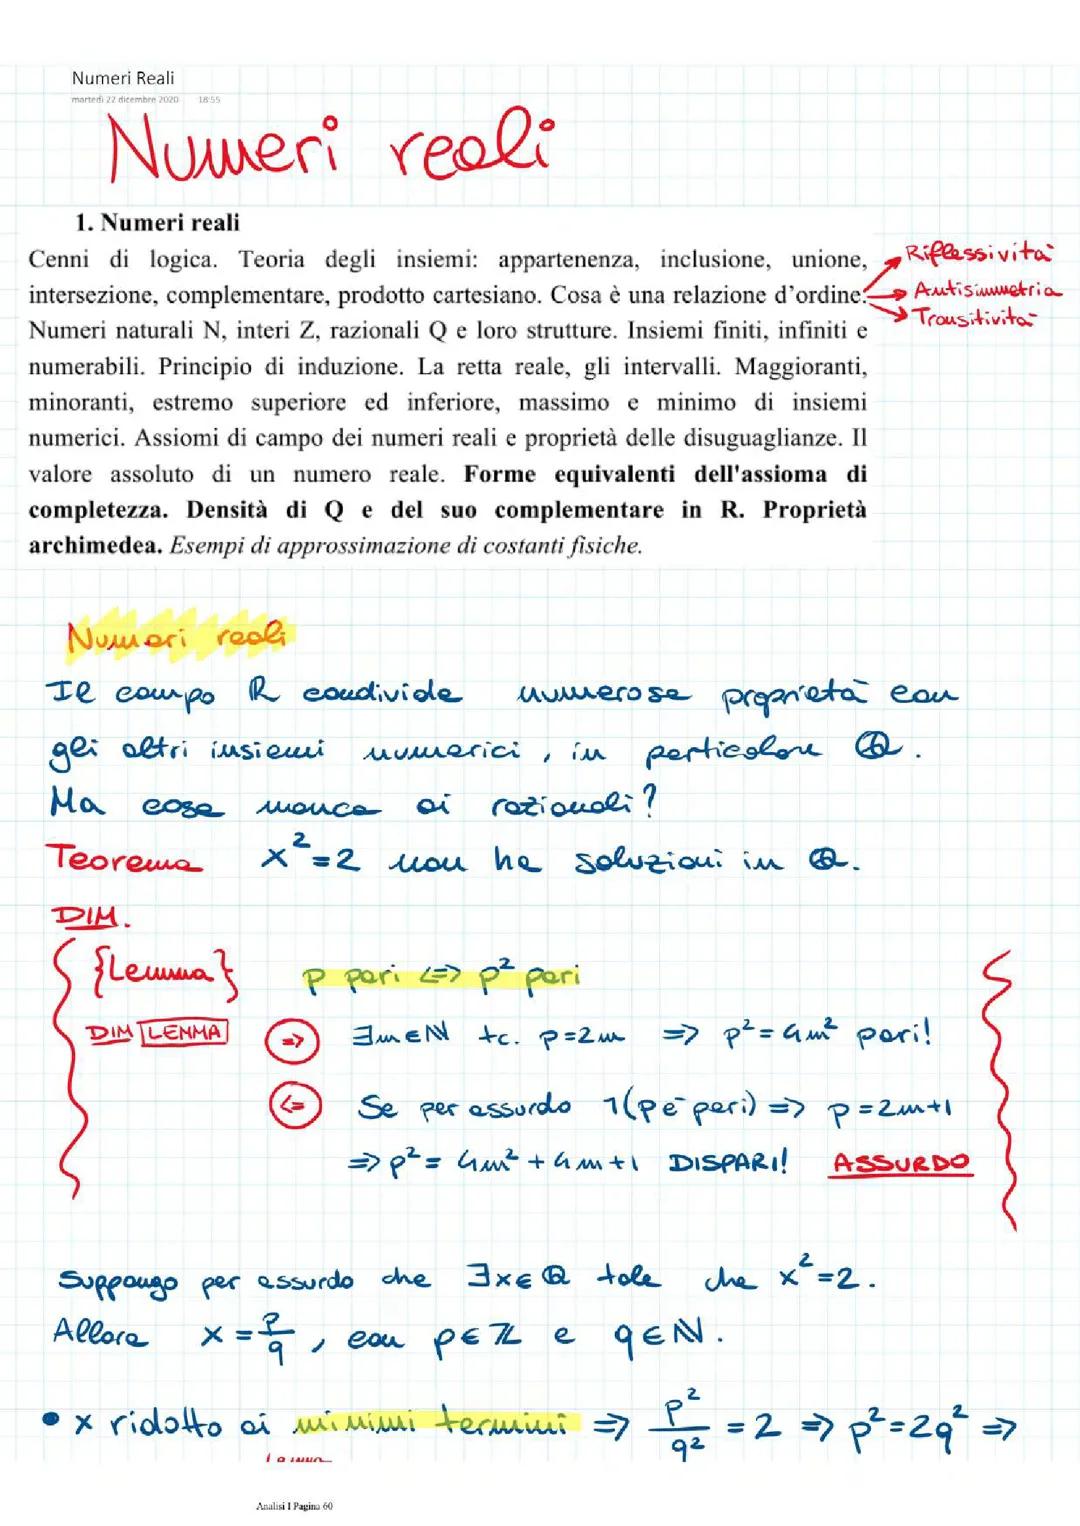 Numeri Reali
martedì 22 dicembre 2020 18:55
Numeri reali
1. Numeri reali
Cenni di logica. Teoria degli insiemi: appartenenza, inclusione, unione,
intersezione, complementare, prodotto cartesiano. Cosa è una relazione d'ordine.
Numeri naturali N, interi Z, razionali Q e loro strutture. Insiemi finiti, infiniti e
numerabili. Principio di induzione. La retta reale, gli intervalli. Maggioranti,
minoranti, estremo superiore ed inferiore, massimo e minimo di insiemi
numerici. Assiomi di campo dei numeri reali e proprietà delle disuguaglianze. Il
valore assoluto di un numero reale. Forme equivalenti dell'assioma di
completezza. Densità di Q e del suo complementare in R. Proprietà
archimedea. Esempi di approssimazione di costanti fisiche.
Riflessività
Antisimmetria
Transitività
Numeri reali
Il campo ℝ condivide numerose proprietà con
gli altri insiemi numerici, in particolare ℚ.
Ma cosa manca ai razionali?
Teorema x²=2 non ha soluzioni in ℚ.
DIM.
{Lemma} p pari <=> p² pari
DIM LEMMA => ∃m∈ℕ tc. p=2m => p²=4m² pari!
<= Se per assurdo ¬(p è pari) => p=2m+1
=> p²=4m²+4m+1 DISPARI! ASSURDO
Suppongo per assurdo che ∃x∈ℚ tale che x²=2.
Allora x=p/q, con p∈ℤ e q∈ℕ.
• x ridotto ai minimi termini => p²/q²=2 => p²=2q² =>
Analisi I Pagina 60